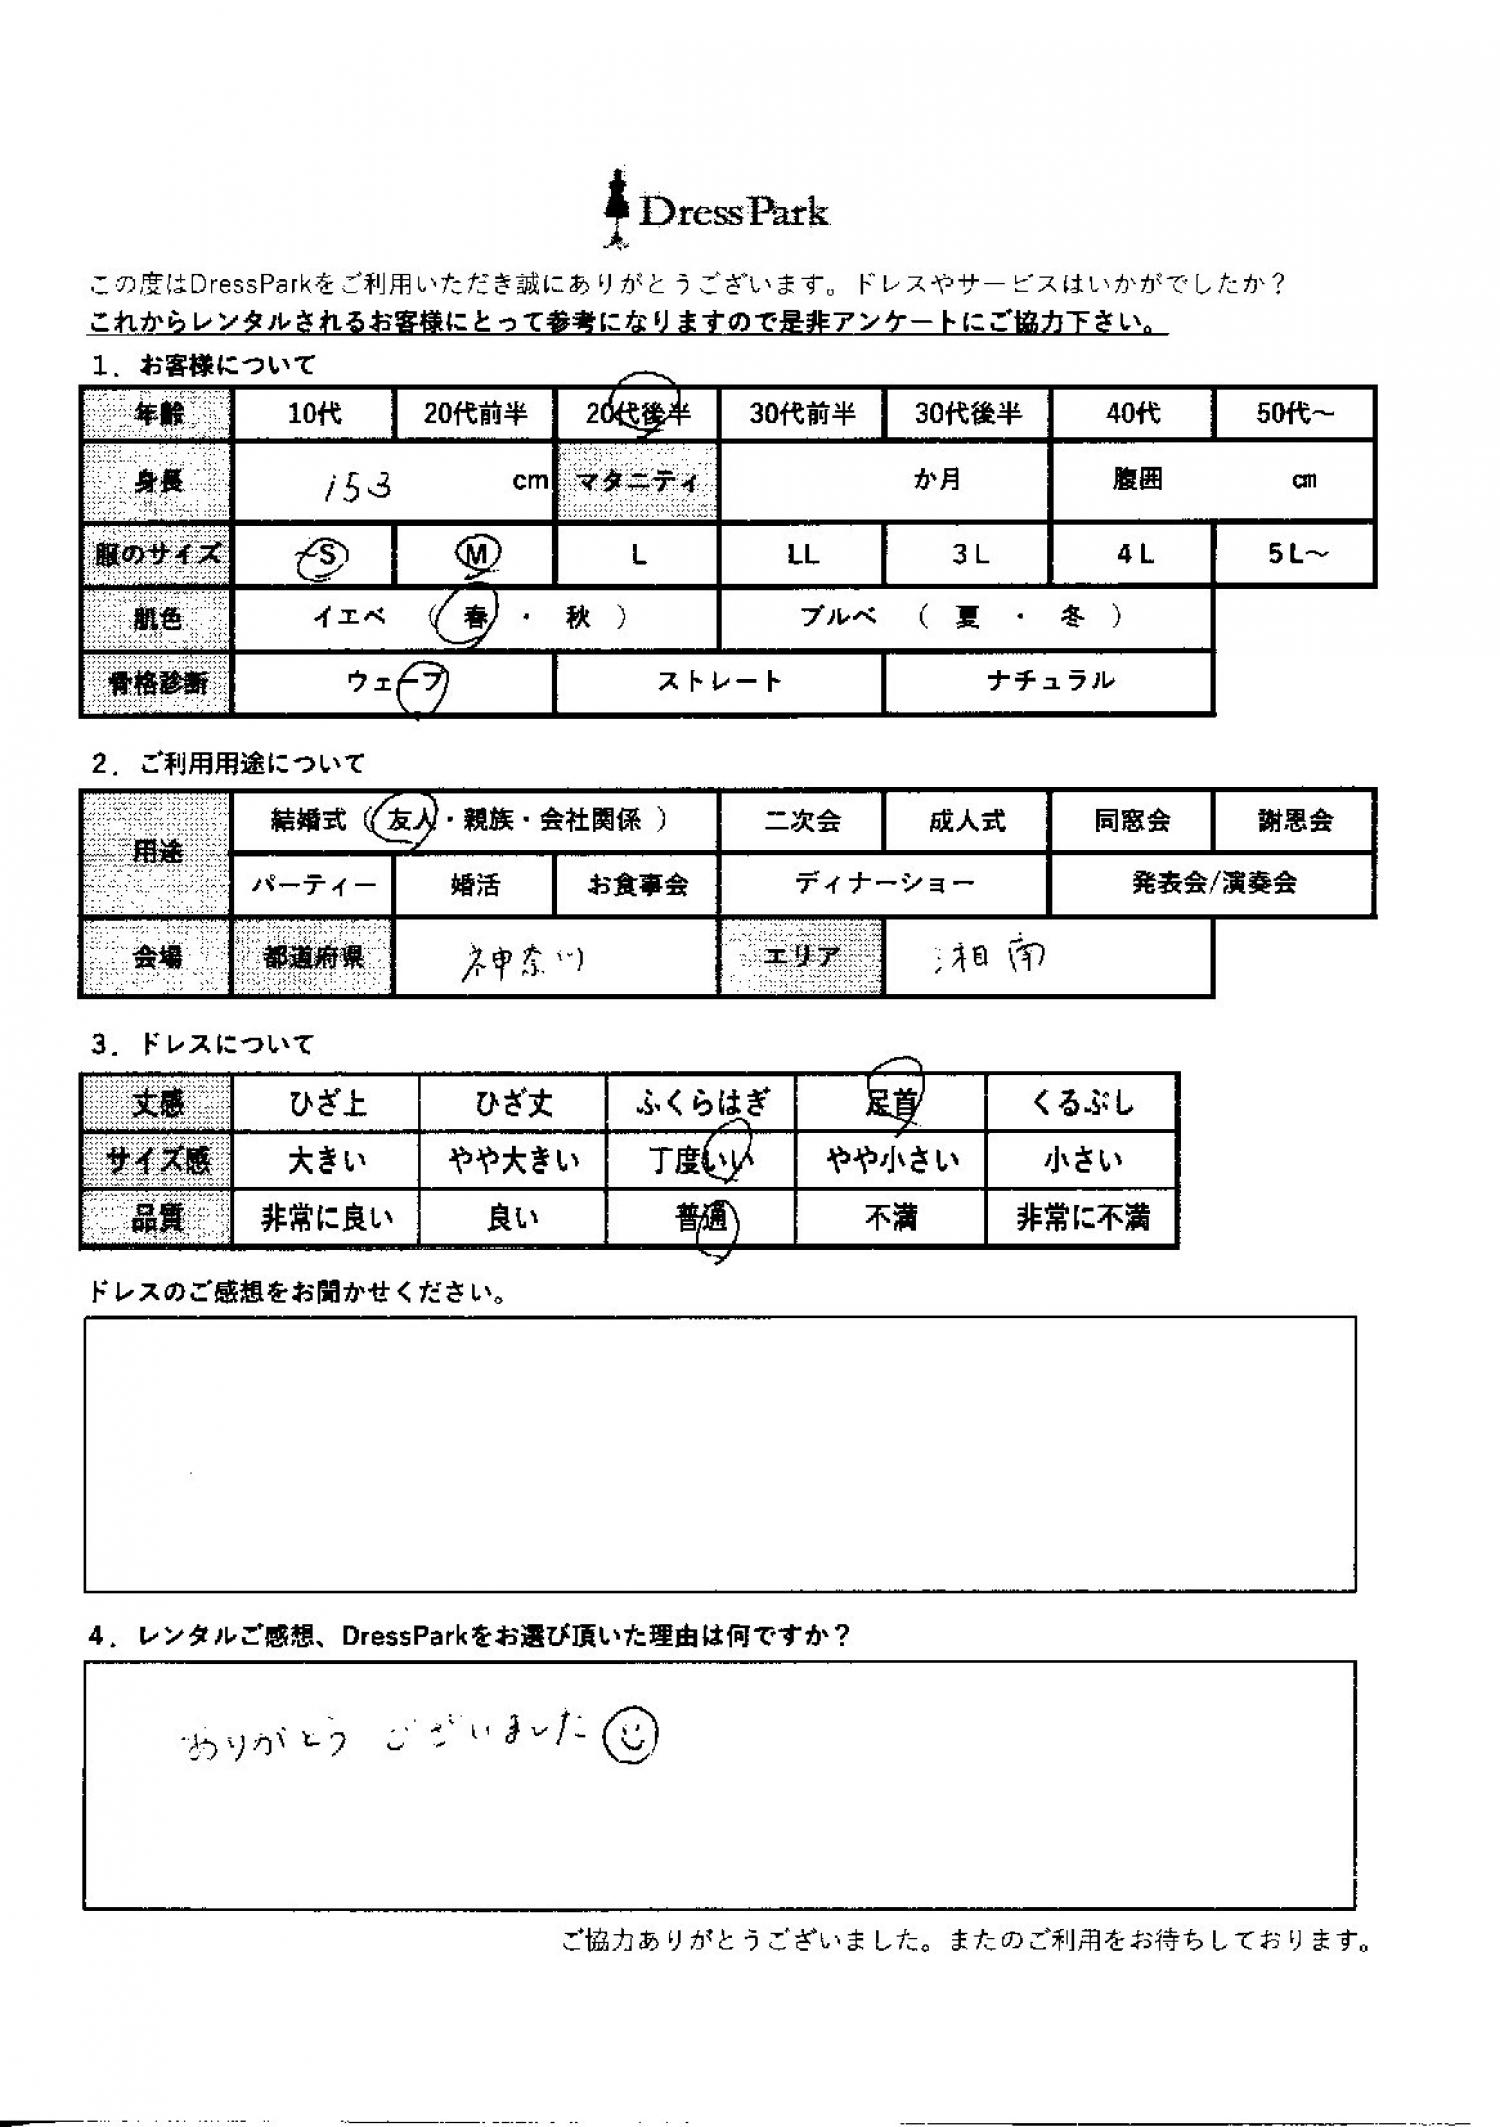 DressPark
この度はDressParkをご利用いただき誠にありがとうございます。ドレスやサービスはいかがでしたか？
これからレンタルされるお客様にとって参考になりますので是非アンケートにご協力下さい。
1．お客様について
年齢 10代 20代前半 20代後半 30代前半 30代後半 40代 50代～
身長 153 cm マタニティ か月 腹囲 cm
服のサイズ ~S M L LL 3L 4L 5L～
肌色 イエベ （ 春 ・ 秋 ） ブルベ （ 夏 ・ 冬 ）
骨格診断 ウェーブ ストレート ナチュラル
2．ご利用用途について
用途 結婚式（ 友人・親族・会社関係 ） 二次会 成人式 同窓会 謝恩会
パーティー 婚活 お食事会 ディナーショー 発表会/演奏会
会場 都道府県 神奈川 エリア 湘南
3．ドレスについて
丈感 ひざ上 ひざ丈 ふくらはぎ 足首 くるぶし
サイズ感 大きい やや大きい 丁度いい やや小さい 小さい
品質 非常に良い 良い 普通 不満 非常に不満
ドレスのご感想をお聞かせください。
4．レンタルご感想、DressParkをお選び頂いた理由は何ですか？
ありがとう ございました
ご協力ありがとうございました。またのご利用をお待ちしております。